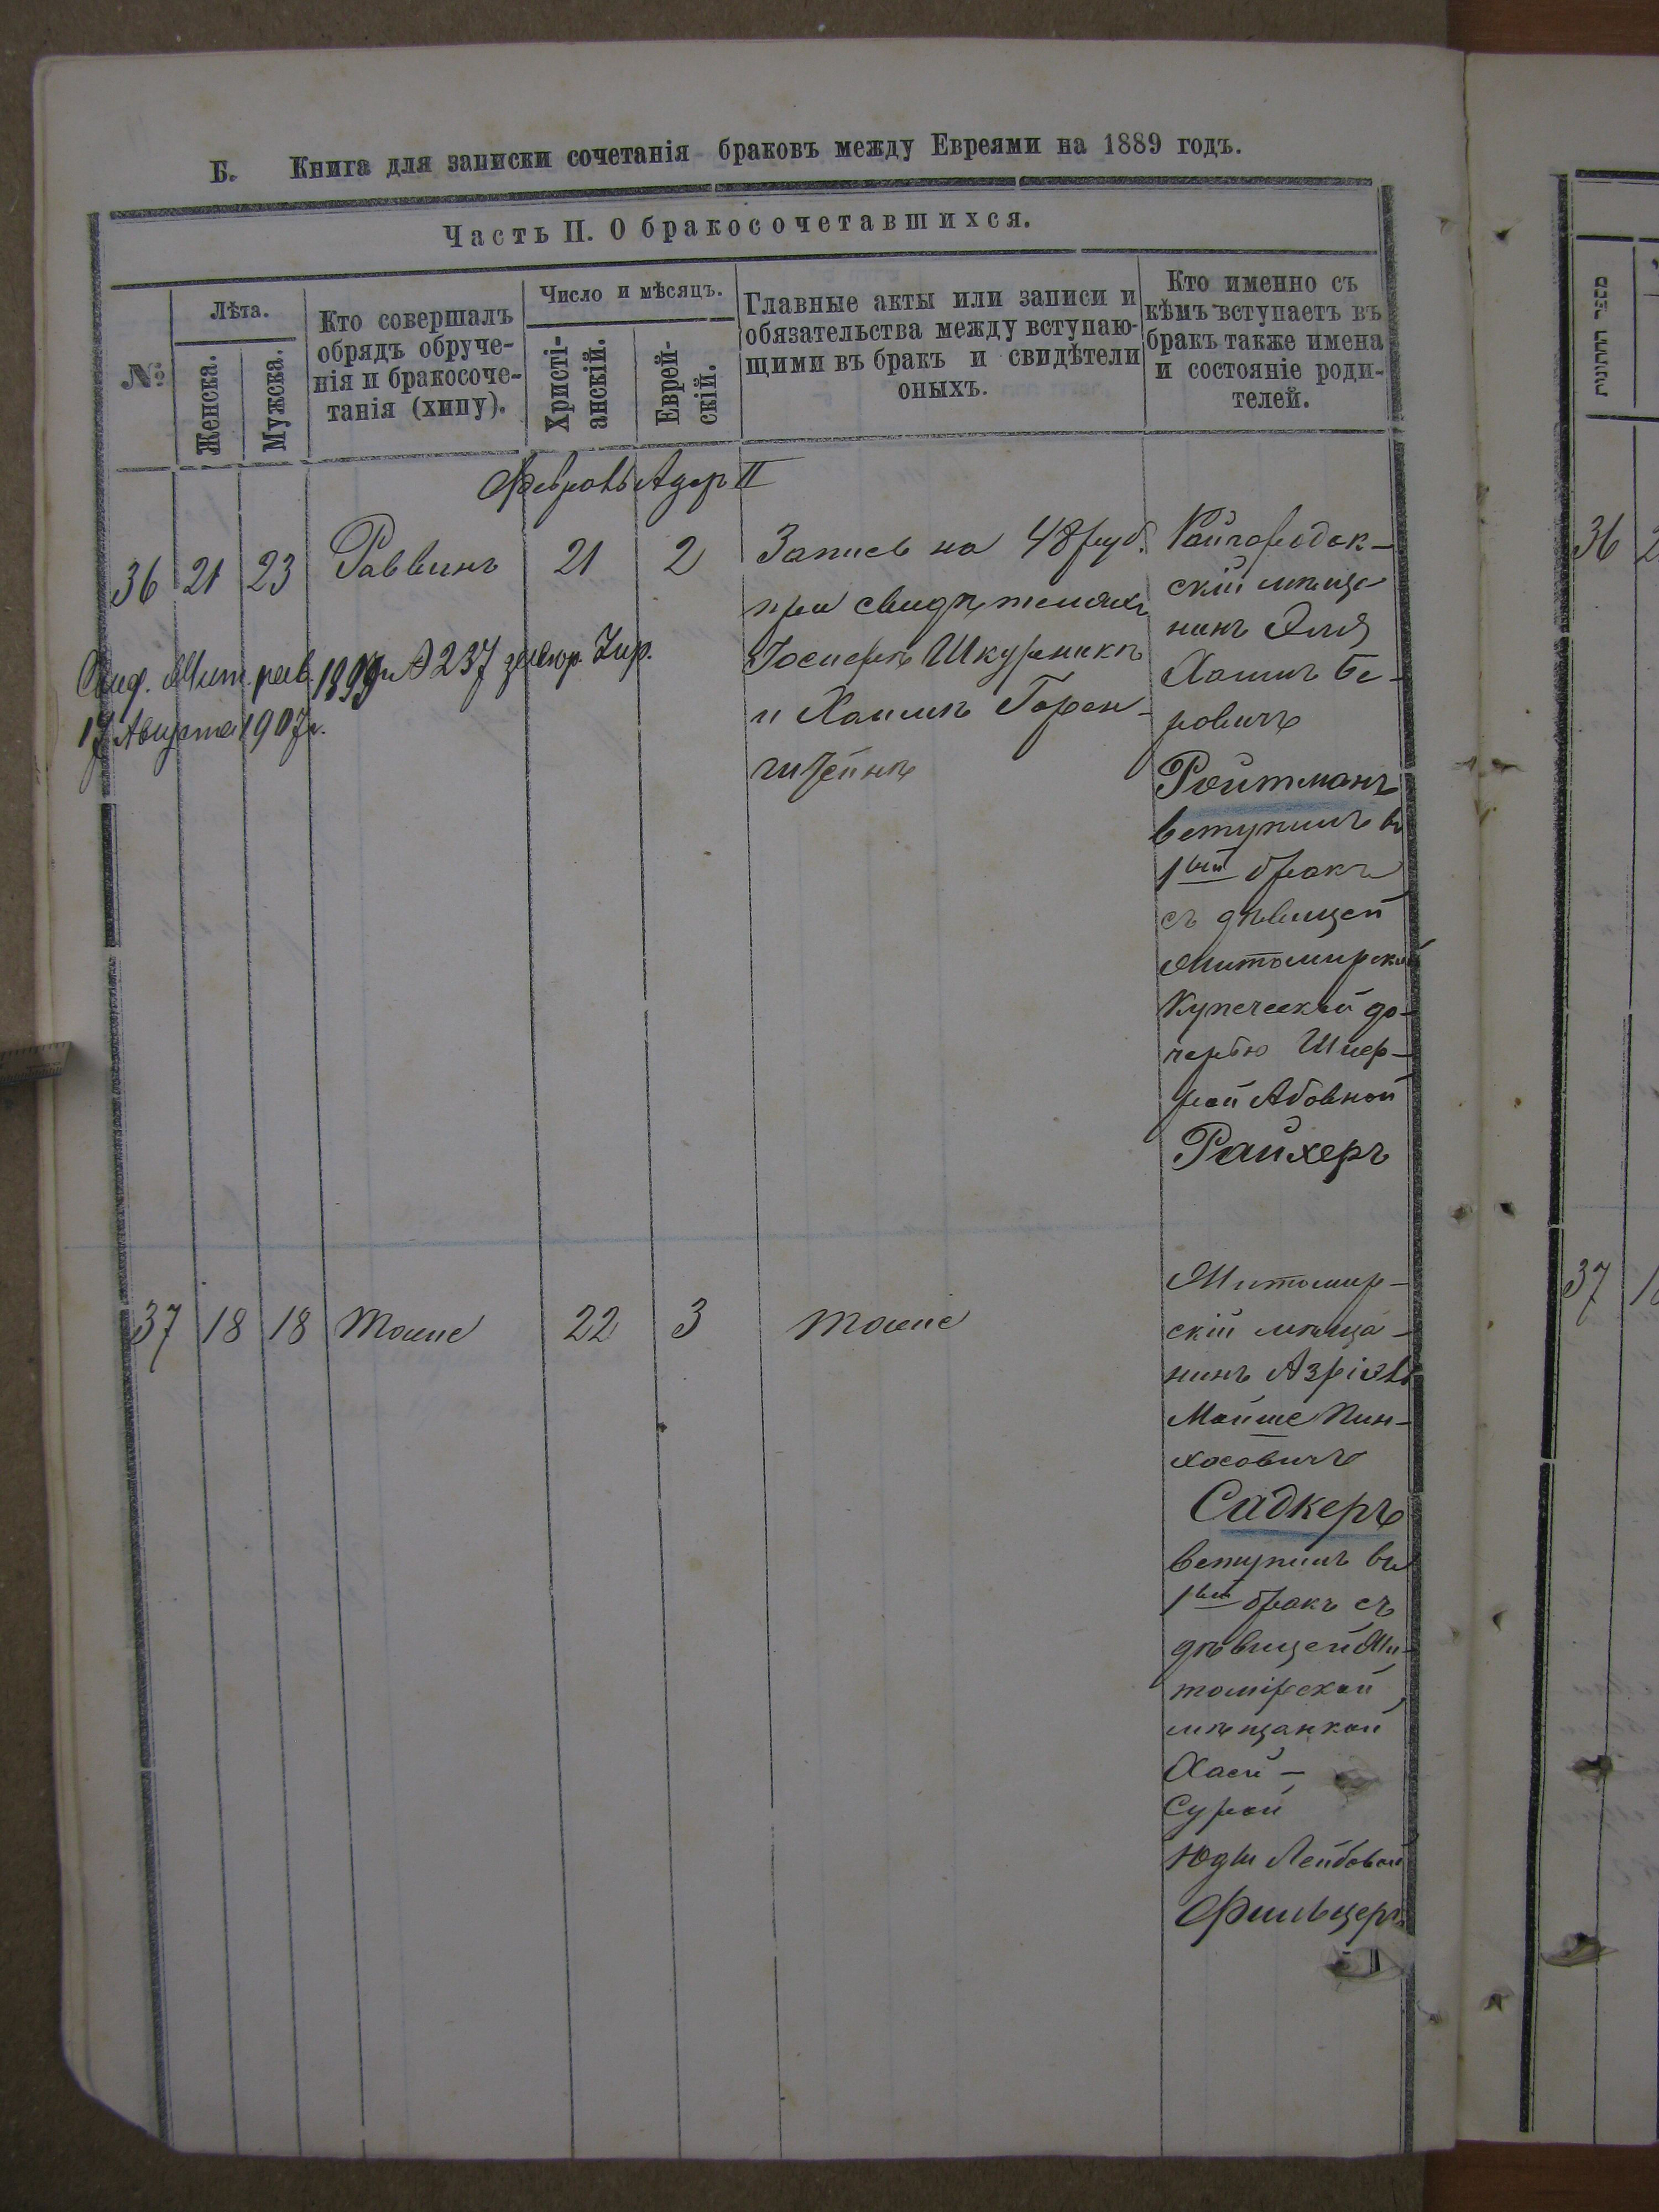 Б. Книга для записки сочетанія браковъ между Евреями на 1889 годъ.
Часть II. О бракосочетавшихся.
№
Лѣта.
Женска.
Мужска.
Кто совершалъ
обрядъ обруче-
нія и бракосоче-
танія (хипу).
Число и мѣсяцъ.
Христі-
анскій.
Еврей-
скій.
Главные акты или записи и
обязательства между вступаю-
щими въ бракъ и свидѣтели
оныхъ.
Кто именно съ
кѣмъ вступаетъ въ
бракъ также имена
и состояніе роди-
телей.
Февраль Адар II
36 21 23 Раввинъ 21 2
Запись на 48 руб.
при свидѣтеляхъ
Іосифѣ Шкурникѣ
и Хаимѣ Горен-
штейнѣ
Райгородок-
скій мѣща
нинъ Эля
Хаимъ Бе-
ровичъ
Ройтманъ
вступилъ въ
1вый бракъ
съ дѣвицей
Житомирской
Купеческой до-
черью Шиф-
рой Абовной
Райхеръ
Свид. Жит. рав. 1899 г. № 237
17 Августа 1907 г.
37 18 18 тоже 22 3 тоже
Житомир-
скій мѣща-
нинъ Азріель
Мойше Пин-
хасовичъ
Садкеръ
вступилъ въ
1вый бракъ съ
дѣвицей Жи-
томірской
мѣщанкой
Хаей-
Сурой
Лейбовой
Фильцеръ
מספר החתונות
36 2
37 1